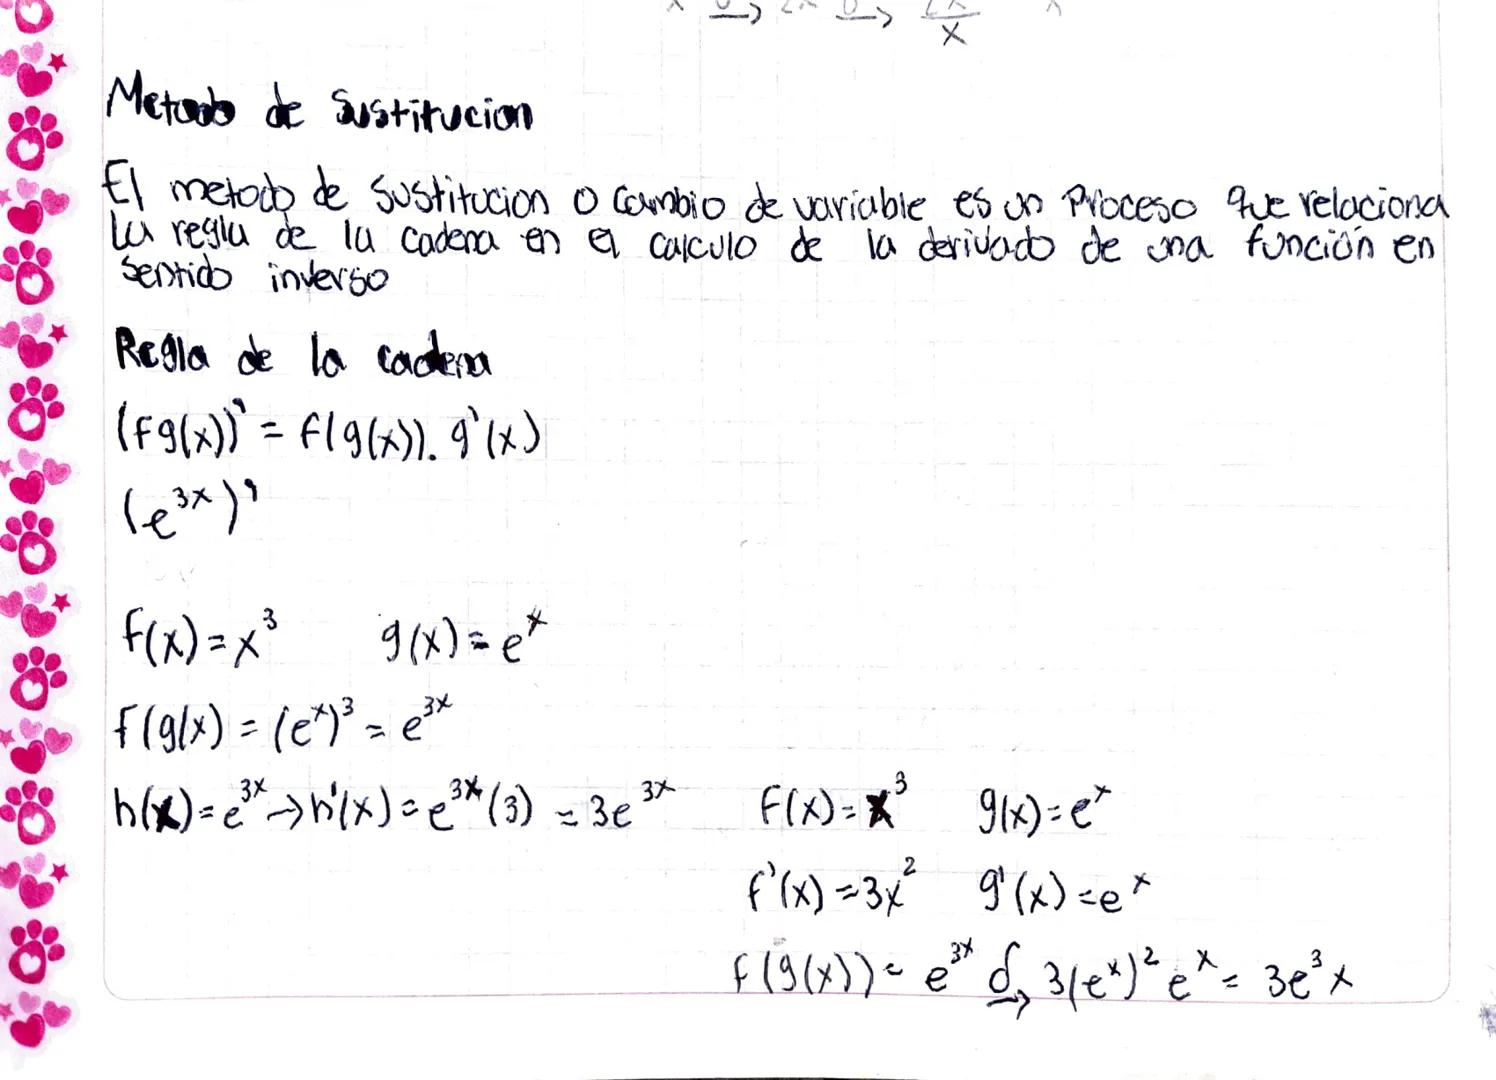 Metodo de Sustitucion
El metodo de sustitucion o cambio de variable es un Proceso que relaciona
la regla de la cadena en el calculo de la derivado de una función en
sentido inverso
Regla de la cadena
(fg(x))' = f(g(x)). g'(x)
(e³ˣ)'
f(x) = x³ g(x) = eˣ
f(g(x) = (eˣ)³ = e³ˣ
h(x) = e³ˣ → h'(x) = e³ˣ (3) = 3e³ˣ
f(x) = x³ g(x) = eˣ
f'(x) = 3x² g'(x) = eˣ
f(g(x)) = e³ˣ d→ 3(eˣ)² eˣ = 3e³x